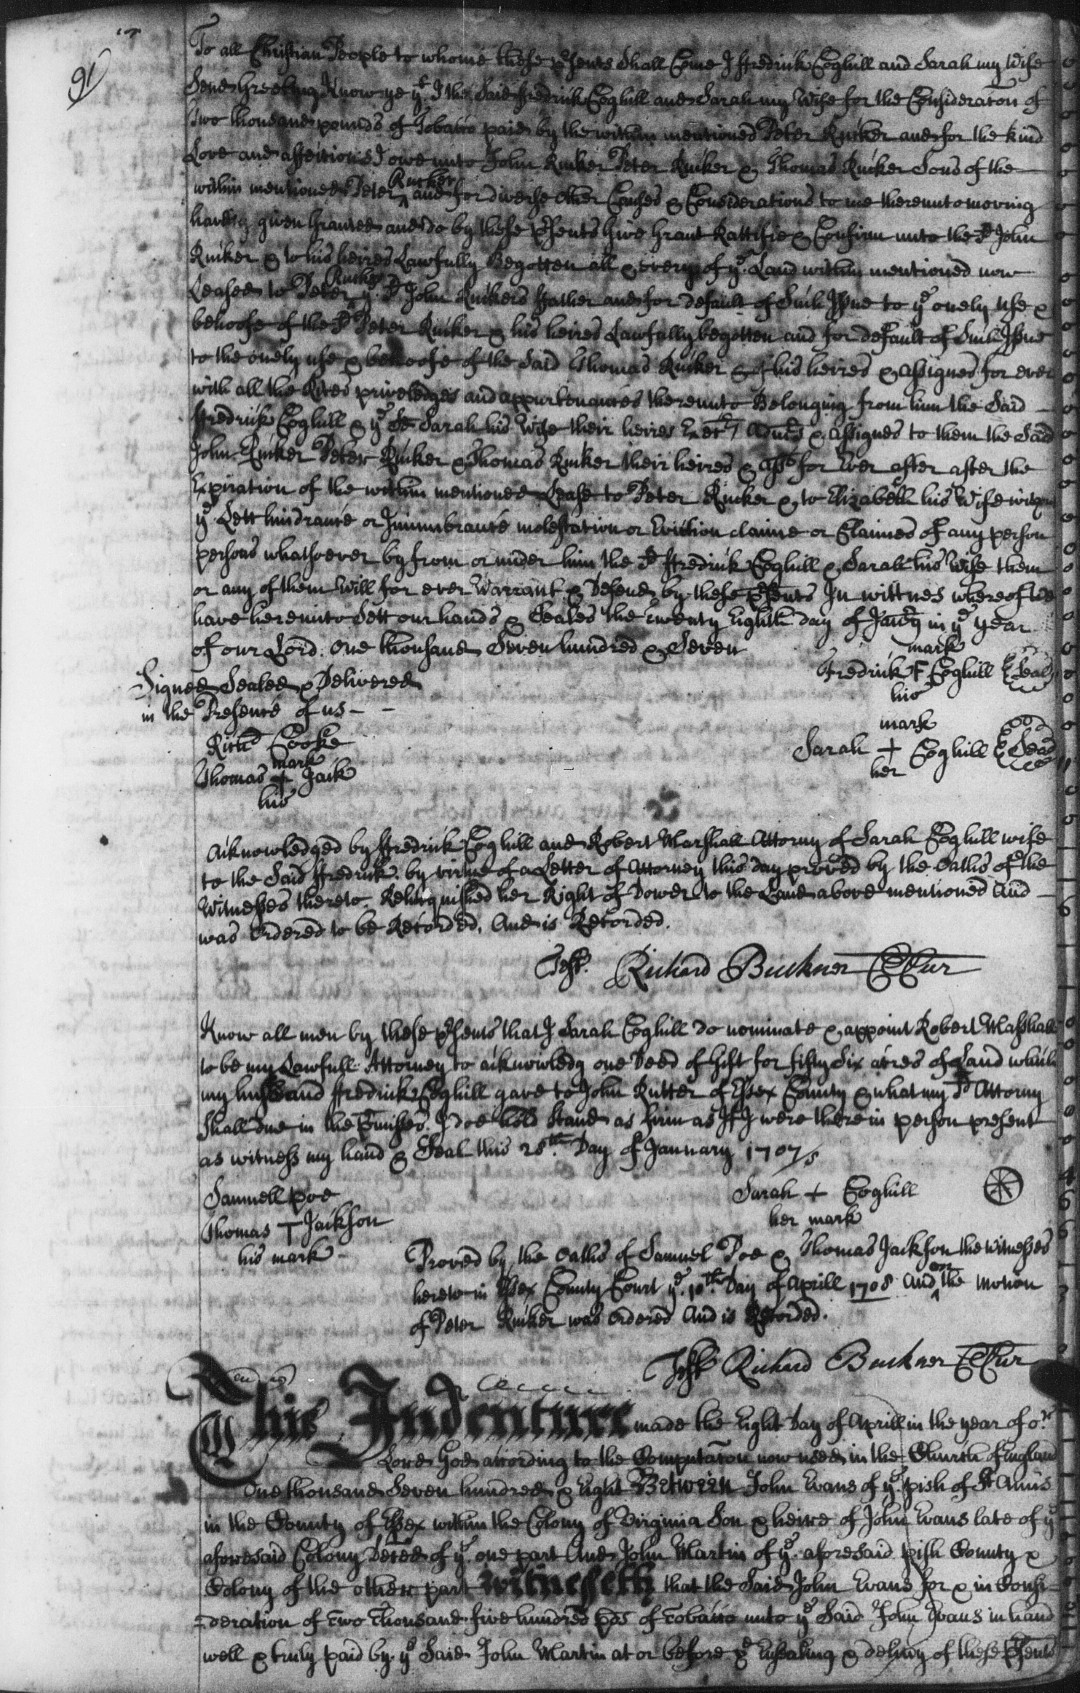 91
To all Christian People to whome these psents Shall Come I ffredrick Coghill and Sarah my Wife
Send Greeting Know ye yt I the Said ffredrick Coghill and Sarah my Wife for the Consideraton of
Two thousand pounds of Tobacco paid by the within mentioned Peter Rucker and for the kind
Love and affection I owe unto John Rucker Peter Rucker & Thomas Rucker Sons of the
within mentioned Peter Rucker and for diverse other Causes & Considerations to me thereunto moving
haveing given Granted and do by these psents Give Grant Rattifie & Confirm unto the sd John
Rucker & to his heires Lawfully Begotten all & every of ye Land within mentioned now
Leased to Peter Rucker ye sd John Ruckers ffather and for default of Such Issue to ye onely use &
behoofe of the sd Peter Rucker & his heires Lawfully begotten and for default of Such Issue
to the onely use & behoofe of the Said Thomas Rucker & of his heires & assignes for ever
with all the Rites priveledges and appurtenances thereunto Belonging from him the Said
ffredrick Coghill & ye sd Sarah his Wife their heires Exectrs Admrs & assignes to them the Said
John Rucker Peter Rucker & Thomas Rucker their heires & asss for Ever after after the
Expiration of the within mentioned Lease to Peter Rucker & to Elizabeth his Wife without
ye Lett hindrance or Incumbrance molestation or Eviction claime or Claimes of any person
persons whatsoever by from or under him the sd ffredrick Coghill & Sarah his Wife them
or any of them Will for ever Warrant & Defend by these psents In wittnes whereof we
have hereunto Sett our hands & Seales the twenty Eighth day of Janry in ye year
of our Lord One thousand Seven hundred & Seven
mark
Fredrick F Coghill Seal
his
Signed Sealed & Delivered
in the Presence of us
Richd Cooke
mark
Thomas + Jack
his
mark
Sarah + Coghill Seal
her
Acknowledged by ffredrick Coghill and Robert Marshall Attorny of Sarah Coghill wife
to the Said ffredrick by virtue of a Letter of Attorney this day proved by the Oaths of the
Witnesses thereto. Relinquished her Right of Dower to the Land above mentioned And
was Ordered to be Recorded. And is Recorded.
Test. Richard Buckner Cl Cur
Know all men by these psents that I Sarah Coghill do nominate & appoint Robert Marshall
to be my Lawfull Attorney to acknowledg one Deed of Gift for fifty Six acres of Land which
my husband ffredrick Coghill gave to John Rutter of Essex County & what my sd Attorny
Shall doe in the Premises I doe hold Stand as firm as If I were there in person present
as witness my hand & Seal this 28th Day of January 1707/8
Samuell Poe
Thomas T Jackson
his mark
Sarah + Coghill
her mark
Proved by the Oaths of Samuel Poe & Thomas Jackson the witnesses
hereto in Essex County Court ye 10th Day of Aprill 1708 And on the motion
of Peter Rucker was Ordered And is Recorded.
Test Richard Buckner Cl Cur
This Indenture made the Eight Day of Aprill in the year of or
Lord God according to the Computation now used in the Church of England
One thousand Seven hundred & Eight Between John Evans of ye pish of St Anns
in the County of Essex within the Colony of Virginia Son & heire of John Evans late of ye
aforesaid Colony Deced of ye one part And John Martin of ye aforesaid pish County &
Colony of the other part Witnesseth that the Said John Evans for & in Consi-
deration of Two Thousand five hundred pds of Tobacco unto ye Said John Evans in hand
well & truly paid by ye Said John Martin at or before ye Ensealing & delivery of these psents